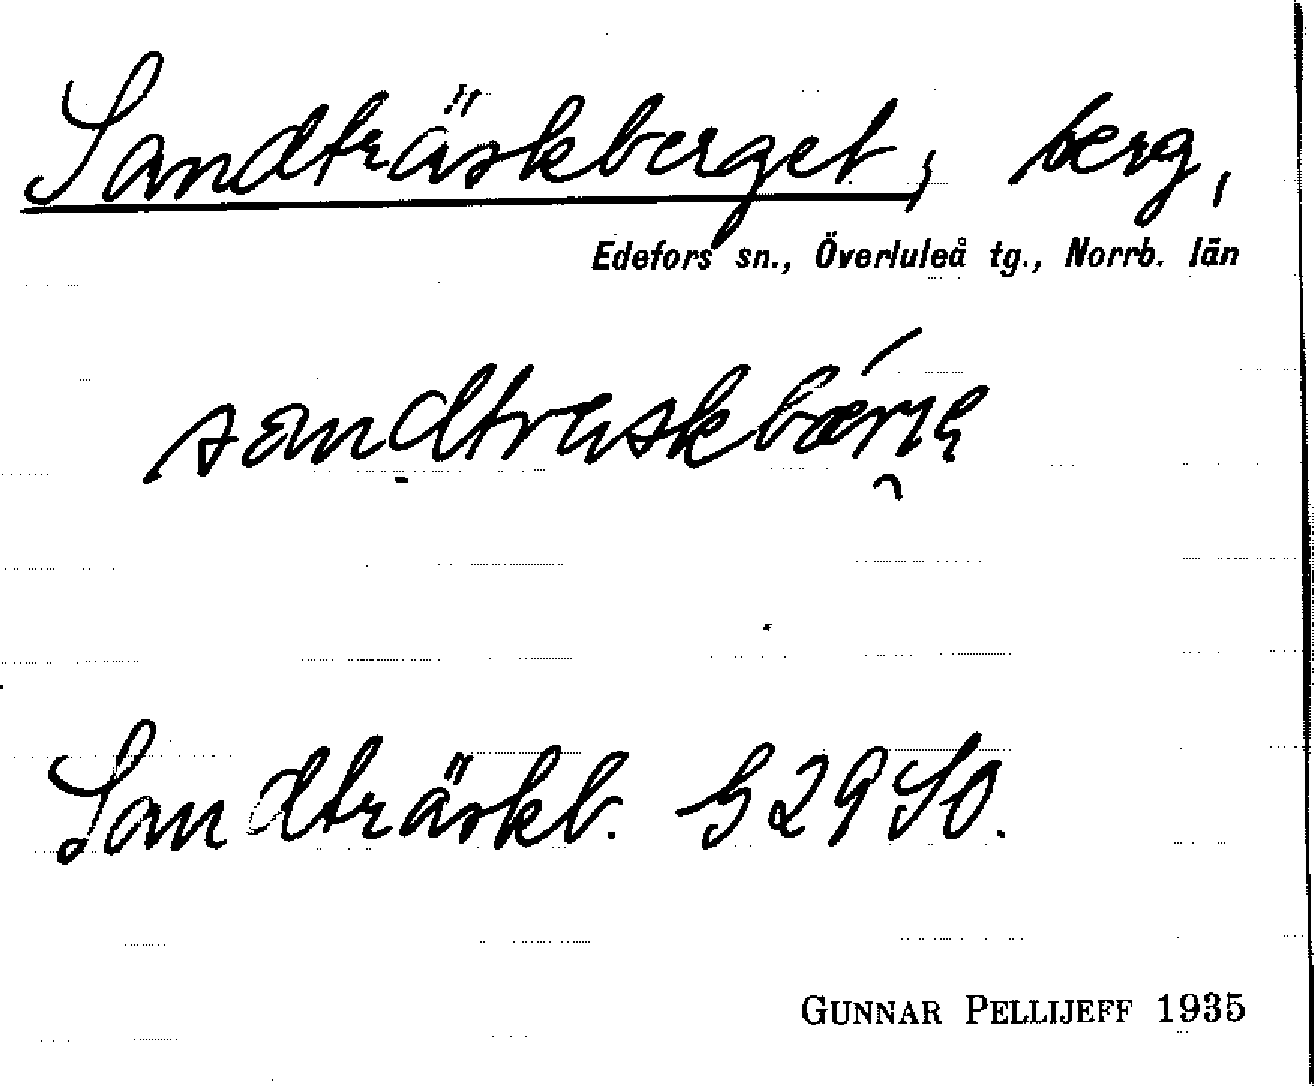 Sandträskberget, berg,
Edefors sn., Överluleå tg., Norrb. län
Sandträskb. G 29 SO.
GUNNAR PELLIJEFF 1935